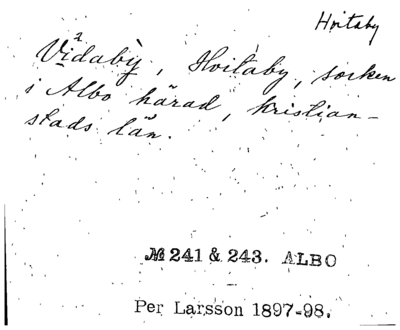 Hvitaby
Vidaby, Hvitaby, socken
i Albo härad, Kristian-
stads län.
№ 241 & 243. ALBO
Per Larsson 1897-98.